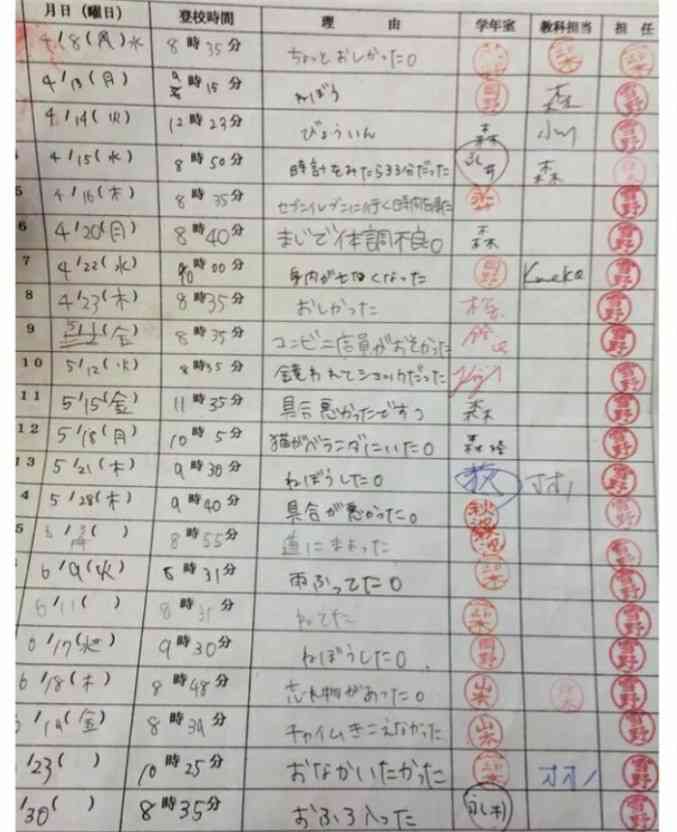 月日(曜日) 登校時間 理由 学年室 教科担当 担任
4/8(月)水 8時35分 ちょっとおしかった。
4/13(月) 9時15分 ねぼう 岡野 森 雪野
4/14(火) 12時23分 びょういん 森 小川 雪野
4/15(水) 8時50分 時計をみたら33分だった 永井 森
5 4/16(木) 8時35分 セブンイレブンに行く 雪野
6 4/20(月) 8時40分 まじで体調不良。 森 雪野
7 4/22(水) 10時00分 なった 岡野 雪野
8 4/23(木) 8時35分 おしかった 雪野
9 (金) 8時35分 コンビニ店員がおそかった 雪野
10 5/12(火) 8時35分 鏡われてショックだった 雪野
11 5/15(金) 11時35分 具合悪かったです 森 雪野
12 5/18(月) 10時5分 猫がベランダにいた。 森 雪野
13 5/21(木) 9時30分 ねぼうした。 雪野
4 5/28(木) 9時40分 具合が悪かった。 雪野
5 8時55分 道にまよった 雪野
6/9(火) 8時31分 雨ふってた。 雪野
6/11( ) 8時31分 ねてた 雪野
6/17(水) 9時30分 ねぼうした。 岡野 雪野
6/18(木) 8時48分 忘れ物があった。 山本 雪野
(金) 8時39分 チャイムきこえなかった 山本 雪野
/23( ) 10時25分 おなかいたかった オオノ 雪野
/30( ) 8時35分 おふろ入った 雪野